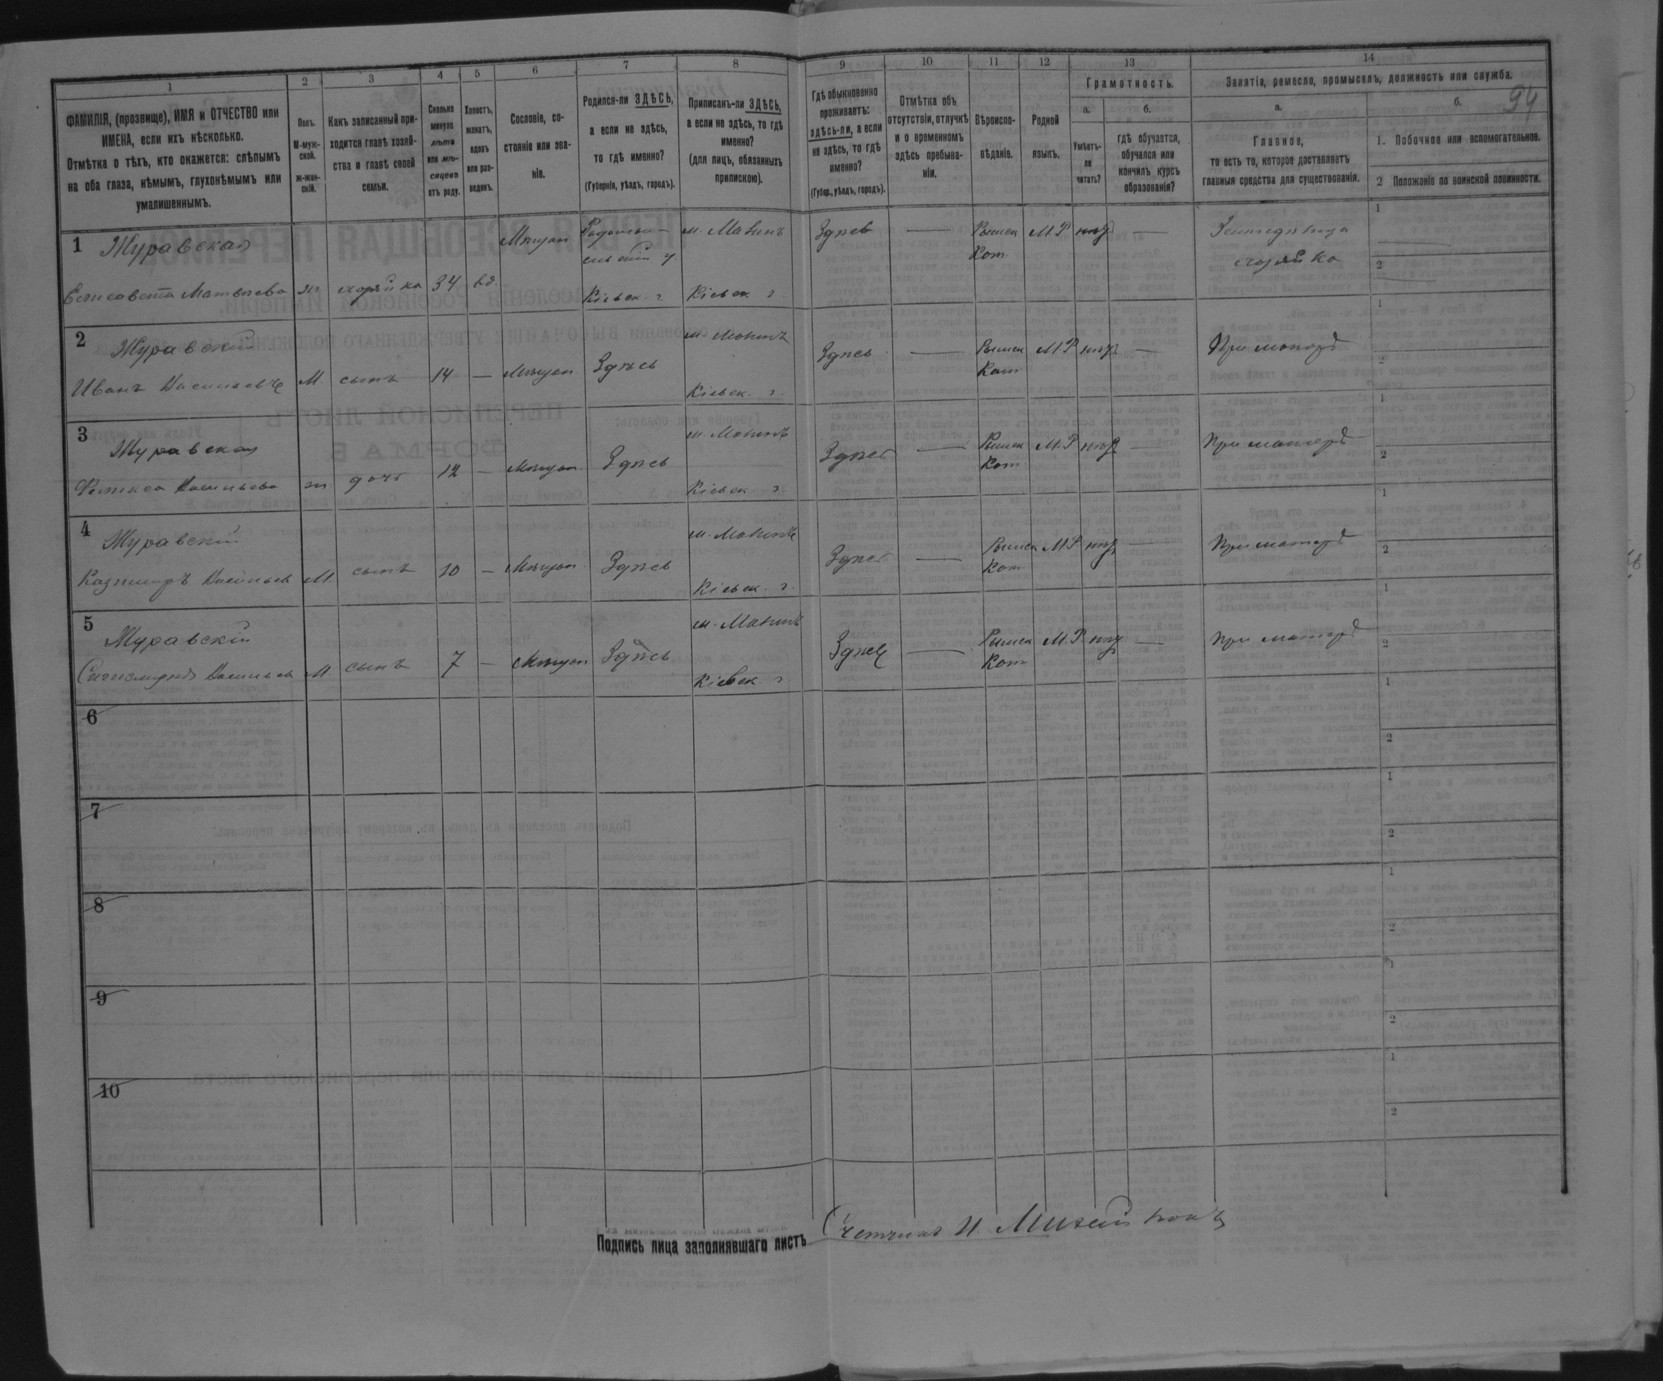 1
2
3
4
5
6
7
8
ФАМИЛІЯ, (прозвище), ИМЯ и ОТЧЕСТВО или
ИМЕНА, если ихъ нѣсколько.
Отмѣтка о тѣхъ, кто окажется: слѣпымъ
на оба глаза, нѣмымъ, глухонѣмымъ или
умалишеннымъ.
Полъ.
М-муж-
ской.
ж-жен-
скій.
Какъ записанный при-
ходится главѣ хозяй-
ства и главѣ своей
семьи.
Сколько
минуло
лѣтъ
или мѣ-
сяцевъ
отъ роду.
Холостъ,
женатъ,
вдовъ
или раз-
веденъ.
Сословіе, со-
стояніе или зва-
ніе.
Родился-ли ЗДѢСЬ,
а если не здѣсь,
то гдѣ именно?
(Губернія, уѣздъ, городъ).
Приписанъ-ли ЗДѢСЬ,
а если не здѣсь, то гдѣ
именно?
(для лицъ, обязанныхъ
припискою).
9
10
11
12
13
14
Гдѣ обыкновенно
проживаетъ:
здѣсь-ли, а если
не здѣсь, то гдѣ
именно?
(Губер., уѣздъ, городъ).
Отмѣтка объ
отсутствіи, отлучкѣ
и о временномъ
здѣсь пребыва-
ніи.
Вѣроиспо-
вѣданіе.
Родной
языкъ.
Грамотность.
а.
б.
Умѣетъ-
ли
читать?
гдѣ обучается,
обучался или
кончилъ курсъ
образованія?
Занятія, ремесло, промыселъ, должность или служба.
94
а.
б.
Главное,
то есть то, которое доставляетъ
главныя средства для существованія.
1. Побочное или вспомогательное.
2 Положеніе по воинской повинности.
1 Журавская
Елисавета Матвѣева ж хозяйка 34 вд.
м. Макинъ
Кіевск. г. Кіевск. г.
Здѣсь — Римск М.Р. —
Кат.
хозяйка
1
2
2 Журавскій
Иванъ Васильевъ М сынъ 14 — Здѣсь
м. Макинъ
Кіевск. г.
Здѣсь — Римск М.Р. —
Кат.
При матерѣ
1
2
3
Журавская
Васильева ж дочь 12 — Здѣсь
м. Макинъ
Кіевск. г.
Здѣсь — Римск М.Р. —
Кат.
При матерѣ
1
2
4
Журавскій
Казимиръ Васильев М сынъ 10 — Здѣсь
м. Макинъ
Кіевск. г.
Здѣсь — Римск М.Р. —
Кат.
При матерѣ
1
2
5
Журавскій
Сигизмундъ Васильев М сынъ 7 — Здѣсь
м. Макинъ
Кіевск. г.
Здѣсь — Римск М.Р. —
Кат.
При матерѣ
1
2
6
1
2
7
1
2
8
1
2
9
1
2
10
1
2
Подпись лица заполнявшаго листъ Счетчикъ И